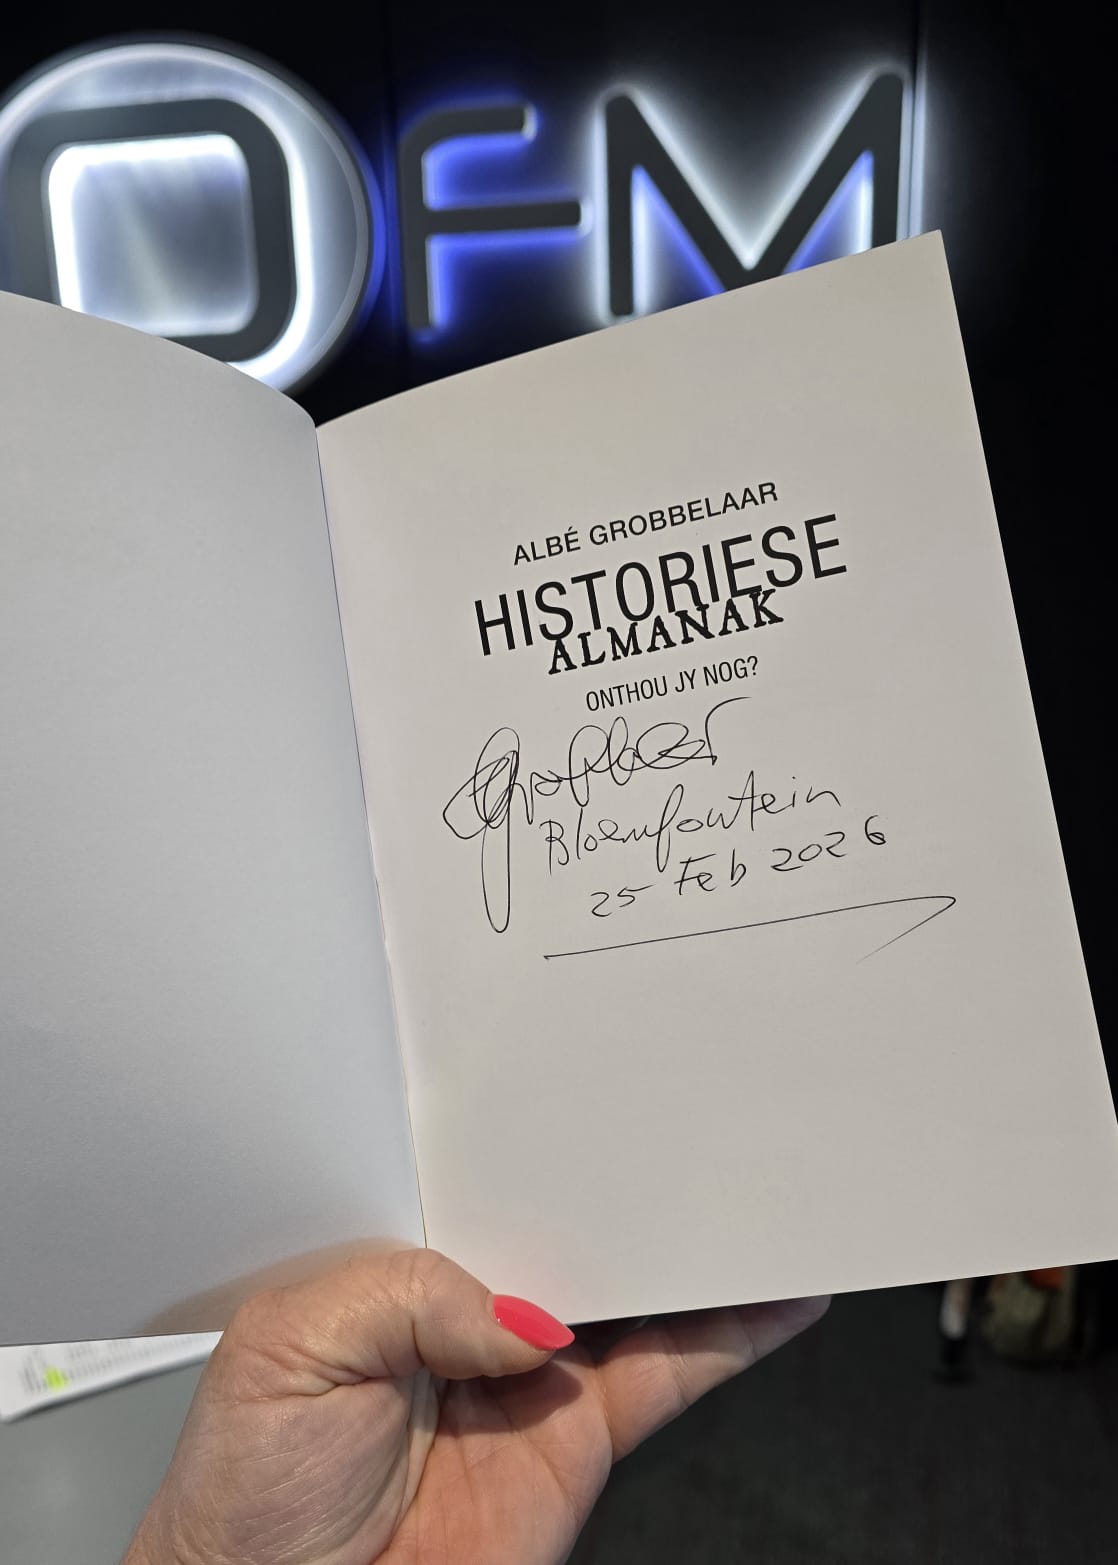 OFM
ALBÉ GROBBELAAR
HISTORIESE
ALMANAK
ONTHOU JY NOG?
Bloemfontein
25 Feb 2026